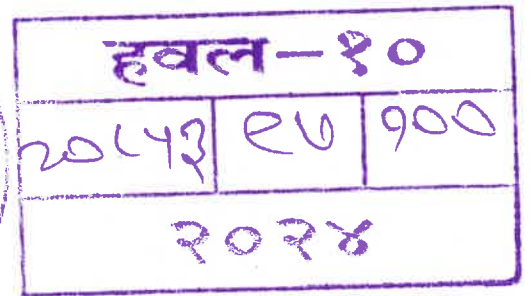 हवल-१०
२०८५३ ९७ १००
२०२४